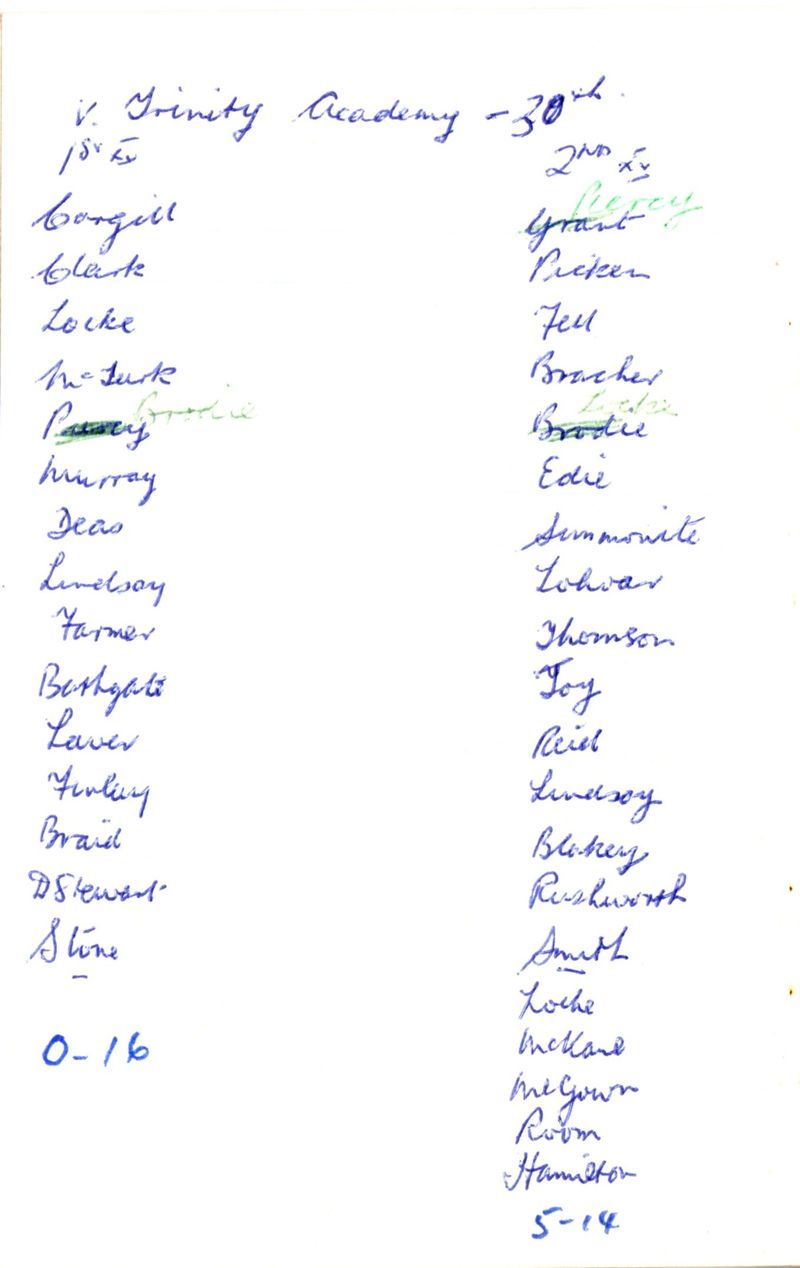 v. Trinity Academy - 30th.
1st XV
Cargill
Clark
Locke
McTurk
Percy Brodie
Murray
Deas
Lindsay
Farmer
Bathgate
Laver
Finlay
Braid
D Stewart
Stone
0-16
2nd XV
Percy
Grant
Picken
Fell
Bracher
Locke
Brodie
Edie
Simmonite
Lohoar
Thomson
Toy
Reid
Lindsay
Blakey
Rushworth
Smith
Locke
McKane
McGown
Room
Hamilton
5-14